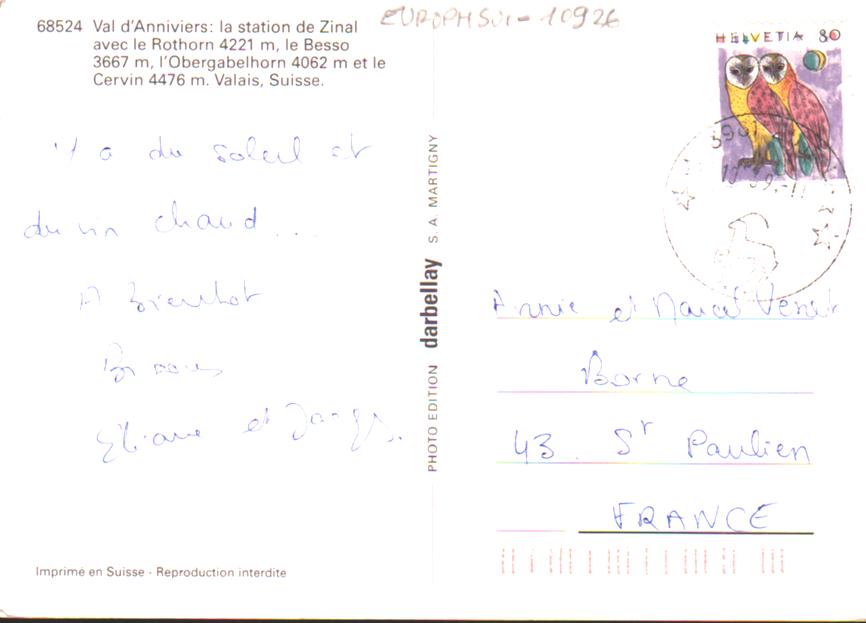 68524 Val d'Anniviers: la station de Zinal
avec le Rothorn 4221 m, le Besso
3667 m, l'Obergabelhorn 4062 m et le
Cervin 4476 m. Valais, Suisse.
EUROPHSUI-10926
HELVETIA 80
y a du soleil et
du vin chaud ...
A Bientôt
Bisous
Eliane et
PHOTO EDITION darbellay S. A. MARTIGNY
Annie et Marcel
Borne
43. St Paulien
FRANCE
Imprimé en Suisse - Reproduction interdite